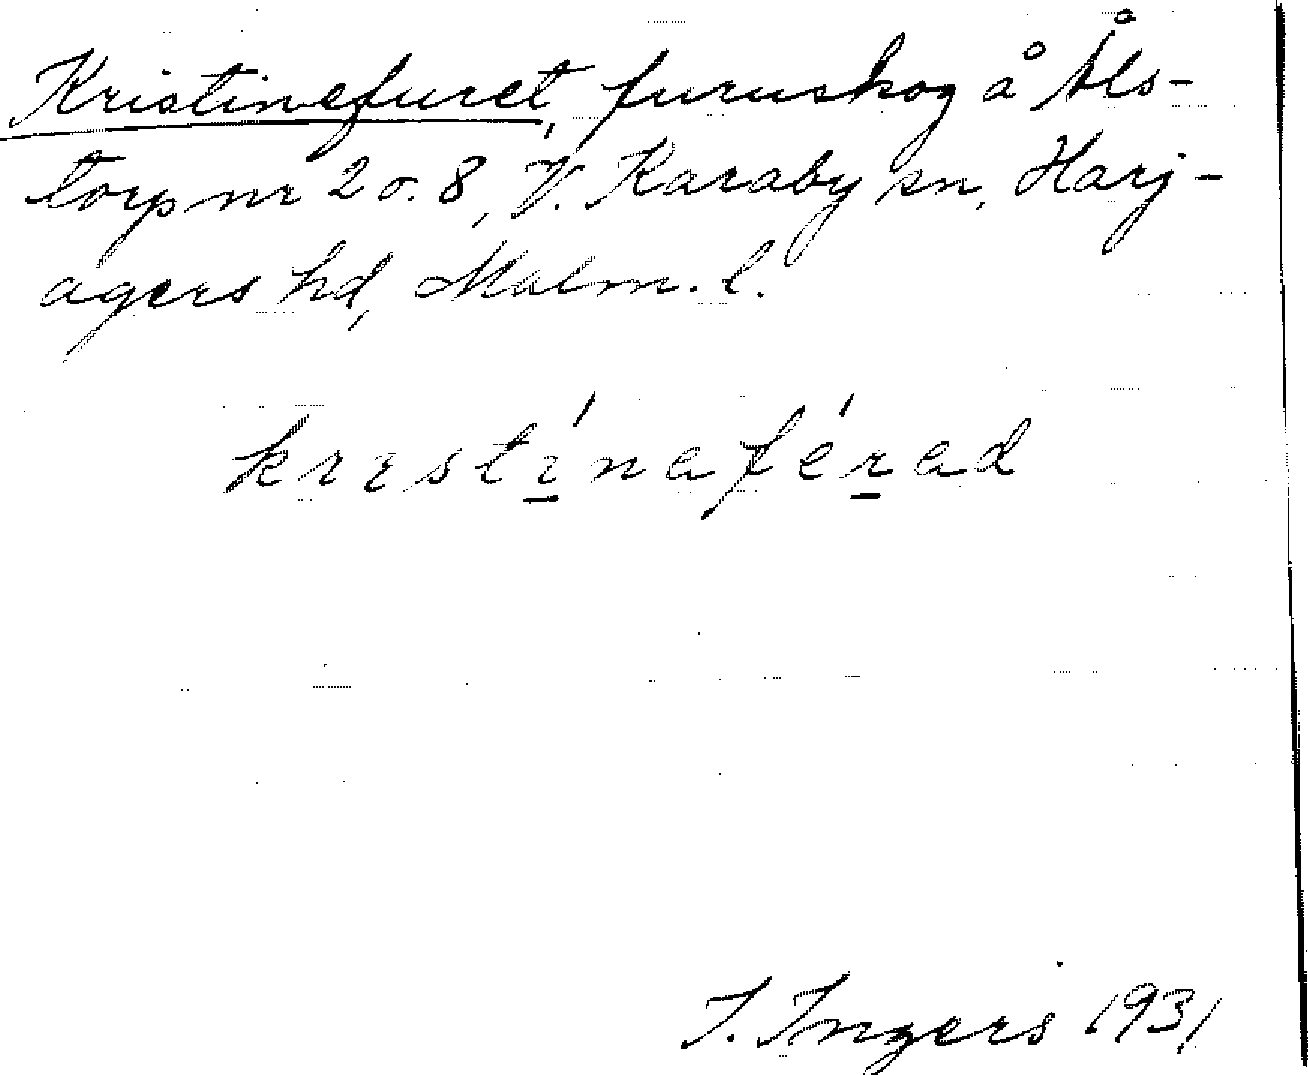 Kristinefuret, furuskog å Åls-
torp nr 2 o. 8, V. Karaby sn, Harj-
agers hd, Malm. l.
krıstı́naférad
I. Ingers 1931